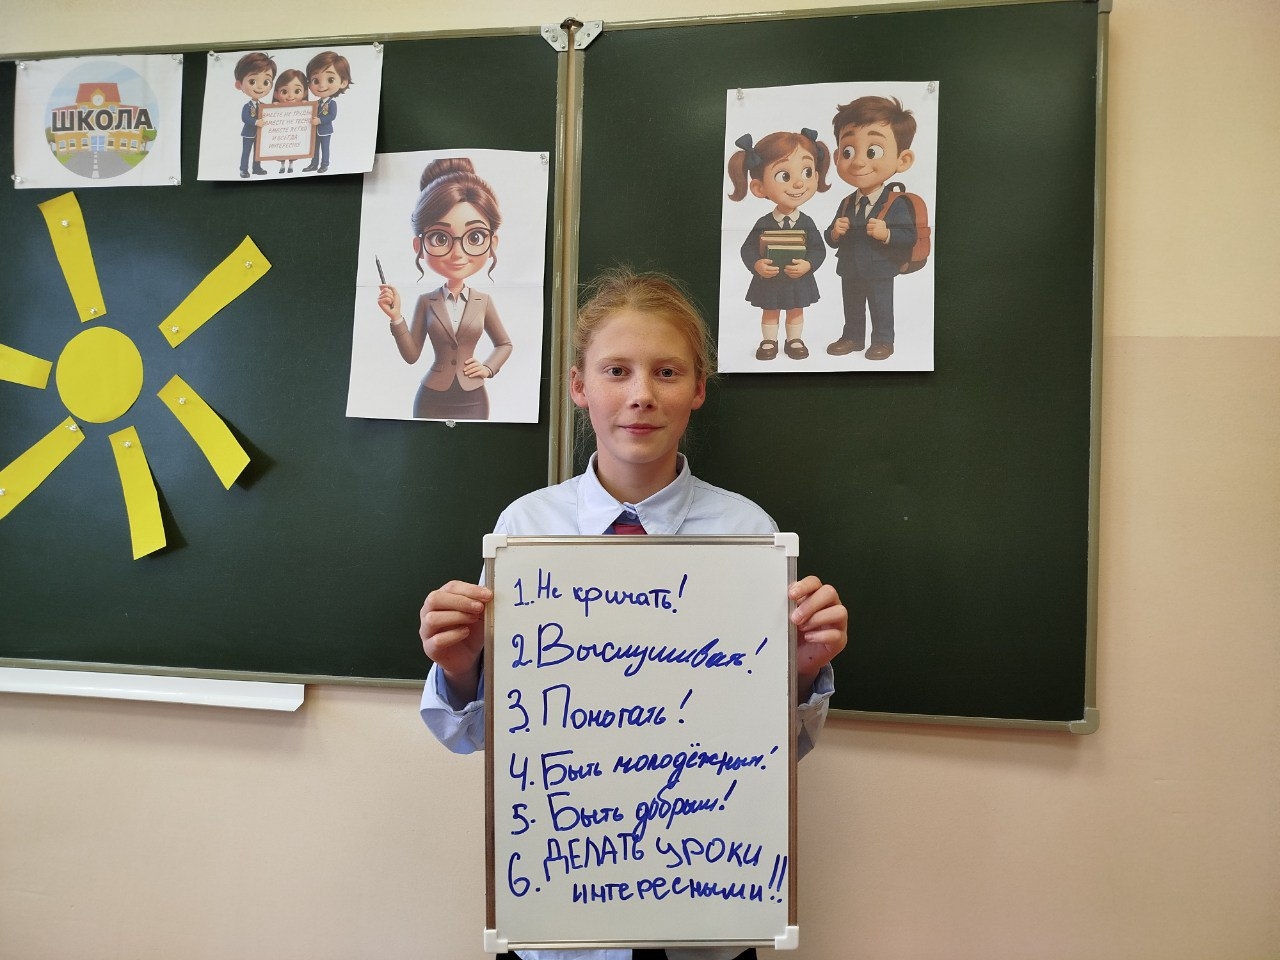 ШКОЛА
ВМЕСТЕ НЕ ТРУДНО
ВМЕСТЕ НЕ ТЕСНО
ВМЕСТЕ ЛЕГКО
И ВСЕГДА
ИНТЕРЕСНО!
1. Не кричать!
2. Выслушивать!
3. Помогать!
4. Быть молодёжным!
5. Быть добрым!
6. ДЕЛАТЬ УРОКИ
ИНТЕРЕСНЫМИ!!